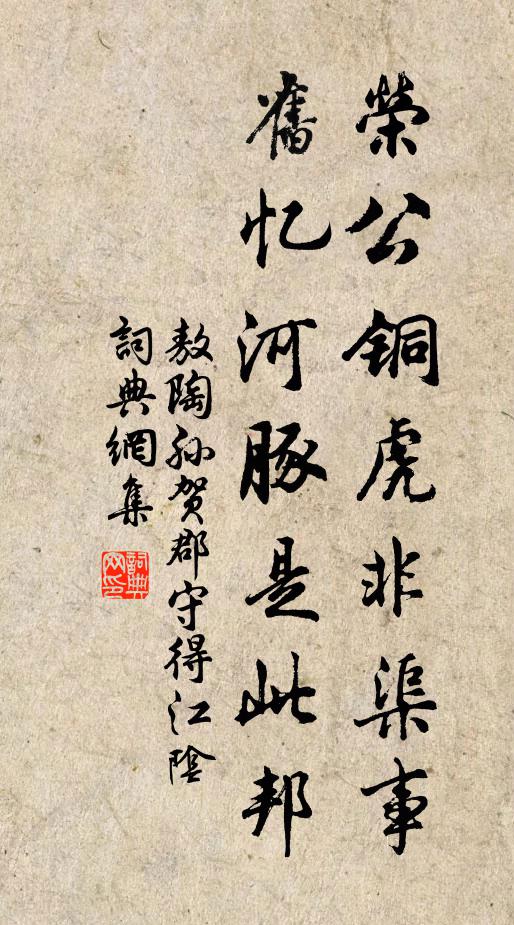 荣公铜虎非渠事
舊忆河豚是此邦
敖陶孙贺郡守得江陰
詞典網集
詞典网印